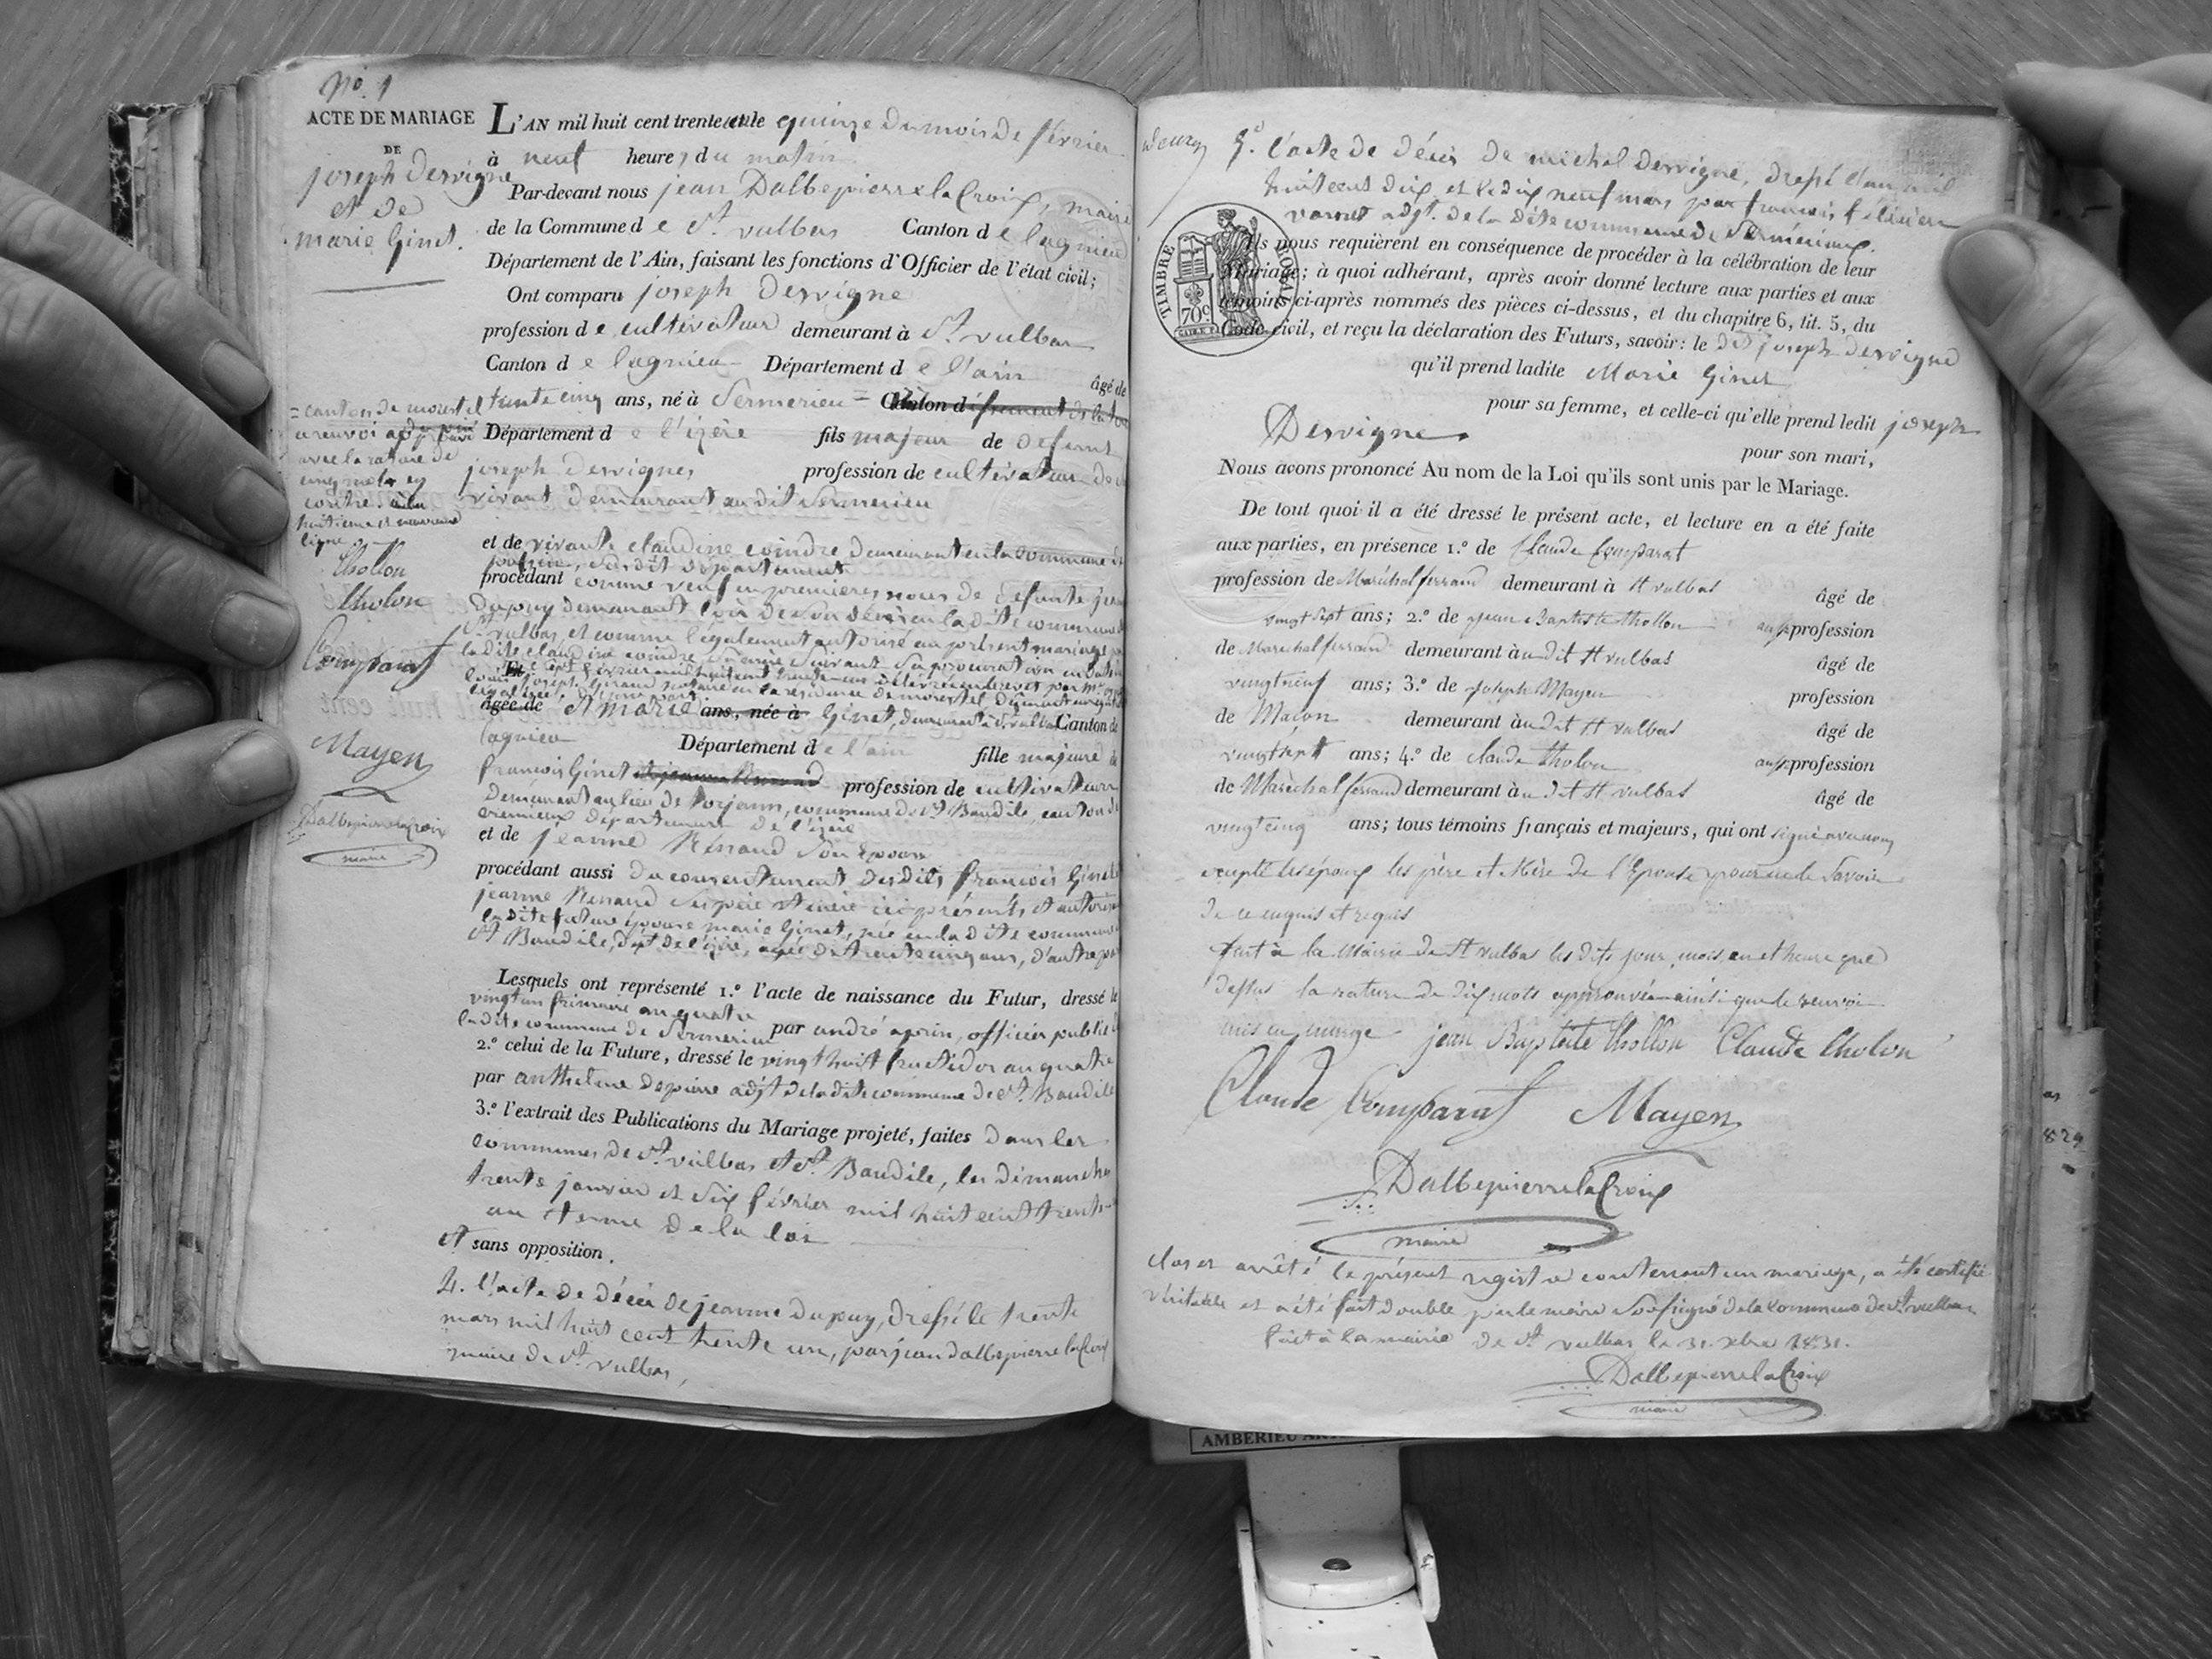 No. 1
ACTE DE MARIAGE
DE
joseph Dervigne
et de
marie Ginet.
L'AN mil huit cent trente et un le quinze du mois de février
à neuf heures du matin
Par-devant nous jean Dalbepierre la Croix, maire
de la Commune de St. vulbas Canton de lagnieu
Département de l'Ain, faisant les fonctions d'Officier de l'état civil;
Ont comparu joseph Dervigne
profession de cultivateur demeurant à St. vulbas
Canton de lagnieu Département de l'ain âgé de
trente cinq ans, né à Sermerieu = Canton d
Département de l'izère fils majeur de defunt
joseph Dervignes profession de cultivateur de
vivant demeurant audit Sermerieu
= canton de morestel
a renvoi approuvé
avec la rature de
cinq mots en
huitieme et neuvieme
ligne
Thollon
Tholon
Comparat
Mayen
Dalbepierre la Croix
maire
et de vivante claudine coindre demeurant en la commune de
susdit département
procédant comme veuf en premieres noces de defunte jeanne
Dupuy demeurant lors de son décès en la dite commune de
St. vulbas, et comme légalement autorisé au présent mariage par
la dite claudine coindre sa mère suivant sa procuration en date
âgée de Et marie ans, née à Ginet, demeurant à St. vulbas Canton de
lagnieu Département de l'ain fille majeure de
francois Ginet profession de cultivateur
demeurant au lieu de torjonn, commune de St Baudile, canton de
crémieux département de l'izère
et de jeanne Renaud son épouse
procédant aussi du consentement desdits francois Ginet
jeanne Renaud ses père et mère ici présents et autorisant
la dite future épouse marie Ginet, née en la dite commune
St Baudile, dépt de l'izère, agée de trente cinq ans, d'autre part
Lesquels ont représenté 1.º l'acte de naissance du Futur, dressé le
vingt un frimaire an quatre
la dite commune de Sermerieu par andré aprin, officier public de
2.º celui de la Future, dressé le vingt huit fructidor an quatre
par anthelme depierre adjt de la dite commune de St. Baudile
3.º l'extrait des Publications du Mariage projeté, faites dans les
communes de St. vulbas et St. Baudile, les dimanches
trente janvier et six février mil huit cent trente-
un terme de la loi
et sans opposition.
4. l'acte de décès de jeanne dupuy, dressé le trente
mars mil huit cent trente un, par jean dalbepierre la Croix
maire de St. vulbas,
5.º l'acte de décès de michel Dervigne, dressé l'an mil
huit cent dix et le dix neuf mars par francois
varnet adjt. de la dite commune de Sermérieux.
TIMBRE ROYAL
70c
Ils nous requièrent en conséquence de procéder à la célébration de leur
Mariage; à quoi adhérant, après avoir donné lecture aux parties et aux
témoins ci-après nommés des pièces ci-dessus, et du chapitre 6, tit. 5, du
Code civil, et reçu la déclaration des Futurs, savoir: le dit joseph dervigne
qu'il prend ladite Marie Ginet
pour sa femme, et celle-ci qu'elle prend ledit joseph
Dervigne
pour son mari,
Nous avons prononcé Au nom de la Loi qu'ils sont unis par le Mariage.
De tout quoi il a été dressé le présent acte, et lecture en a été faite
aux parties, en présence 1.º de Claude Comparat
profession de Maréchal ferrand demeurant à St vulbas âgé de
vingt sept ans; 2.º de jean Baptiste thollon aussi profession
de Marechal ferrand demeurant audit St vulbas âgé de
vingt neuf ans; 3.º de joseph Mayen profession
de Macon demeurant audit St vulbas âgé de
vingt sept ans; 4.º de claude tholon aussi profession
de Maréchal ferrand demeurant audit St vulbas âgé de
vingt cinq ans; tous témoins français et majeurs, qui ont signé avec nous
excepté les époux les père et Mère de l'Epouse pour ne le Savoir
de ce enquis et requis
fait à la Mairie de St vulbas les dits jour, mois, an et heure que
dessus la rature de dix mots approuvée ainsi que le renvoi
mis en marge jean Baptiste thollon Claude tholon
Claude Comparat Mayen
Dalbepierre la Croix
maire
clos et arrêté le présent registre contenant un mariage, a été certifié
véritable et a été fait double par le maire soussigné de la commune de St vulbas
fait à la mairie de St. vulbas le 31. xbre 1831.
Dalbepierre la Croix
maire
829
AMBERIEU